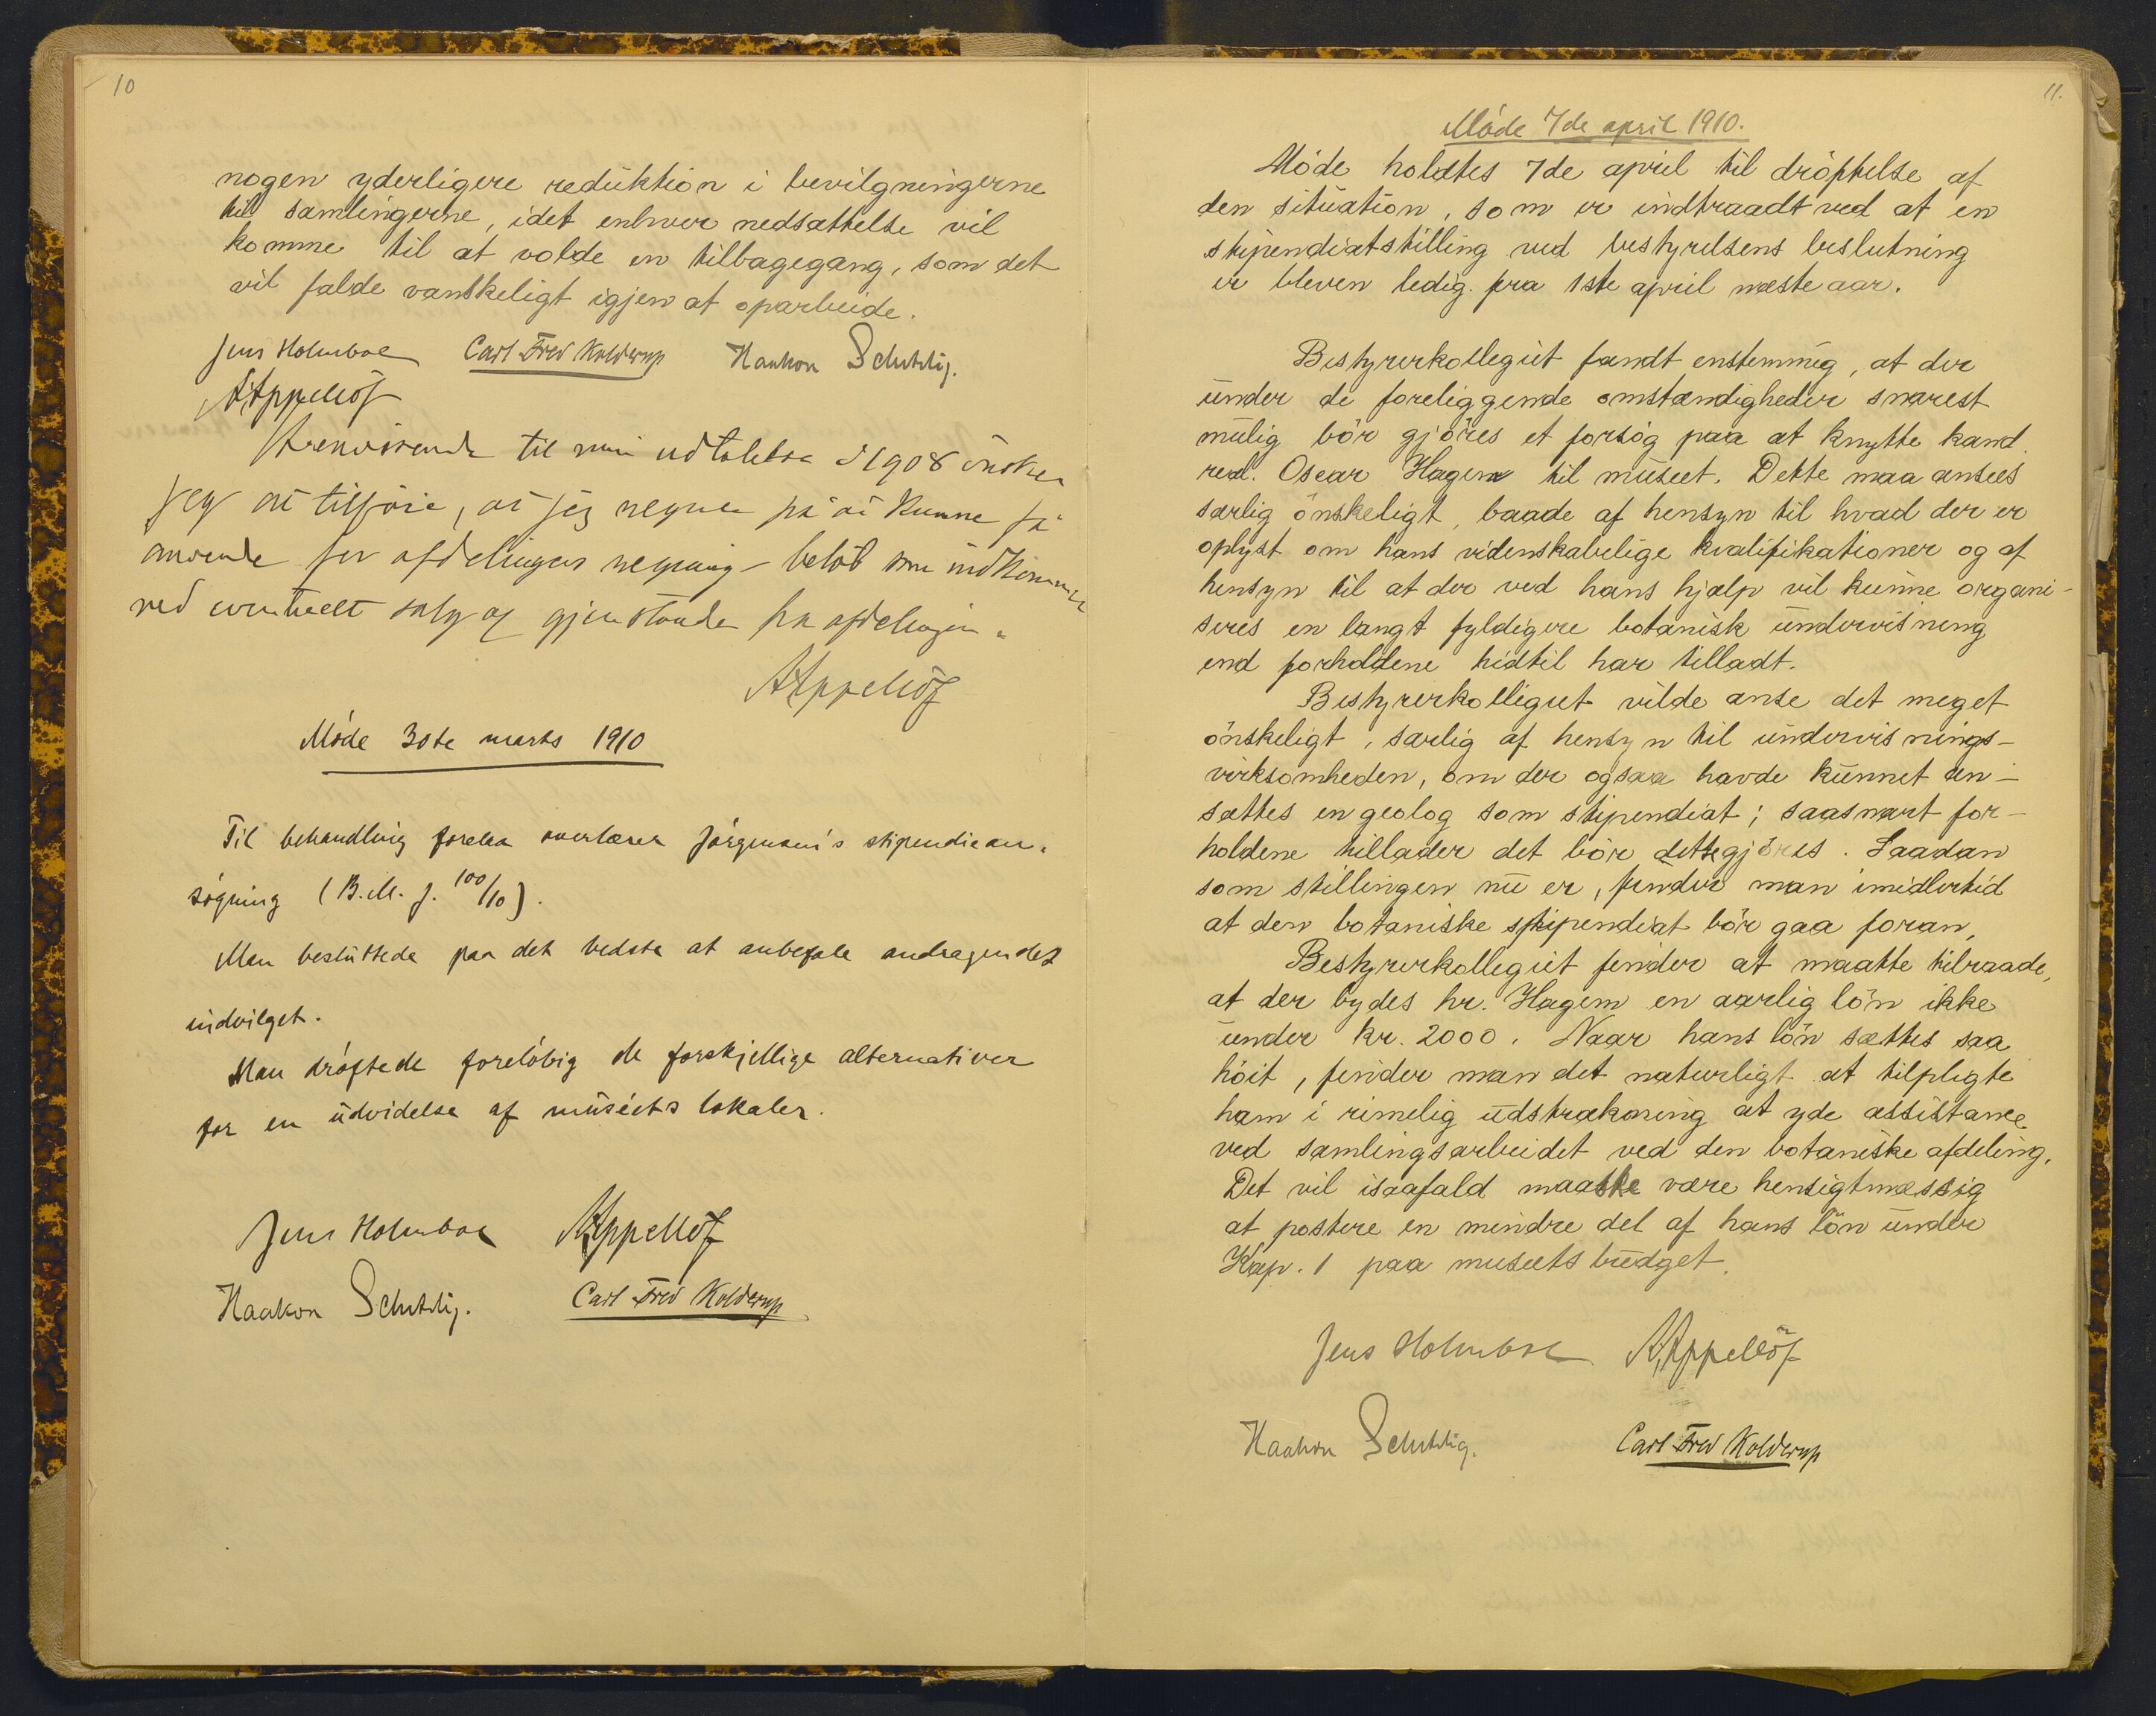 10
nogen yderligere reduktion i bevilgningerne
til samlingerne, idet enhver nedsættelse vil
komme til at volde en tilbagegang, som det
vil falde vanskeligt igjen at oparbeide.
Jens Holmboe Carl Fred Kolderup Haakon Schetelig.
A Appellöf
Henvisende til min udtalelse i 1908 önsker
jeg at tilföie, at jeg regner på at kunne få
anvende for afdelingens regning beløb som indkommer
ved eventuelt salg af gjenstande fra afdelingen.
A Appellöf
Møde 30te marts 1910
Til behandling forelaa overlærer Jørgensen's stipendiean-
søgning (B.M. j. 100/10).
Man besluttede paa det bedste at anbefale andragendet
indvilget.
Man drøftede foreløbig de forskjellige alternativer
for en udvidelse af muséets lokaler.
Jens Holmboe A Appellöf
Haakon Schetelig. Carl Fred Kolderup
11.
Møde 7de april 1910.
Møde holdtes 7de april til drøftelse af
den situation, som er indtraadt ved at en
stipendiatstilling ved bestyrelsens beslutning
er bleven ledig fra 1ste april næste aar.
Bestyrerkollegiet fandt enstemmig, at der
under de foreliggende omstændigheder snarest
mulig bør gjøres et forsøg paa at knytte kand.
real. Oscar Hagem til museet. Dette maa ansees
særlig ønskeligt, baade af hensyn til hvad der er
oplyst om hans videnskabelige kvalifikationer og af
hensyn til at der ved hans hjælp vil kunne organi-
seres en langt fyldigere botanisk undervisning
end forholdene hidtil har tilladt.
Bestyrerkollegiet vilde anse det meget
ønskeligt, særlig af hensyn til undervisnings-
virksomheden, om der ogsaa havde kunnet an-
sættes en geolog som stipendiat; saasnart for-
holdene tillader det bør dette gjøres. Saadan
som stillingen nu er, finder man imidlertid
at den botaniske stipendiat bør gaa foran.
Bestyrerkollegiet finder at maatte tilraade,
at der bydes hr. Hagem en aarlig løn ikke
under kr. 2000. Naar hans løn sættes saa
høit, finder man det naturligt at tilpligte
ham i rimelig udstrækning at yde assistance
ved samlingsarbeidet ved den botaniske afdeling.
Det vil isaafald maaske være hensigtmæssig
at postere en mindre del af hans løn under
Kap. 1 paa museets budget.
Jens Holmboe A Appellöf
Haakon Schetelig. Carl Fred Kolderup